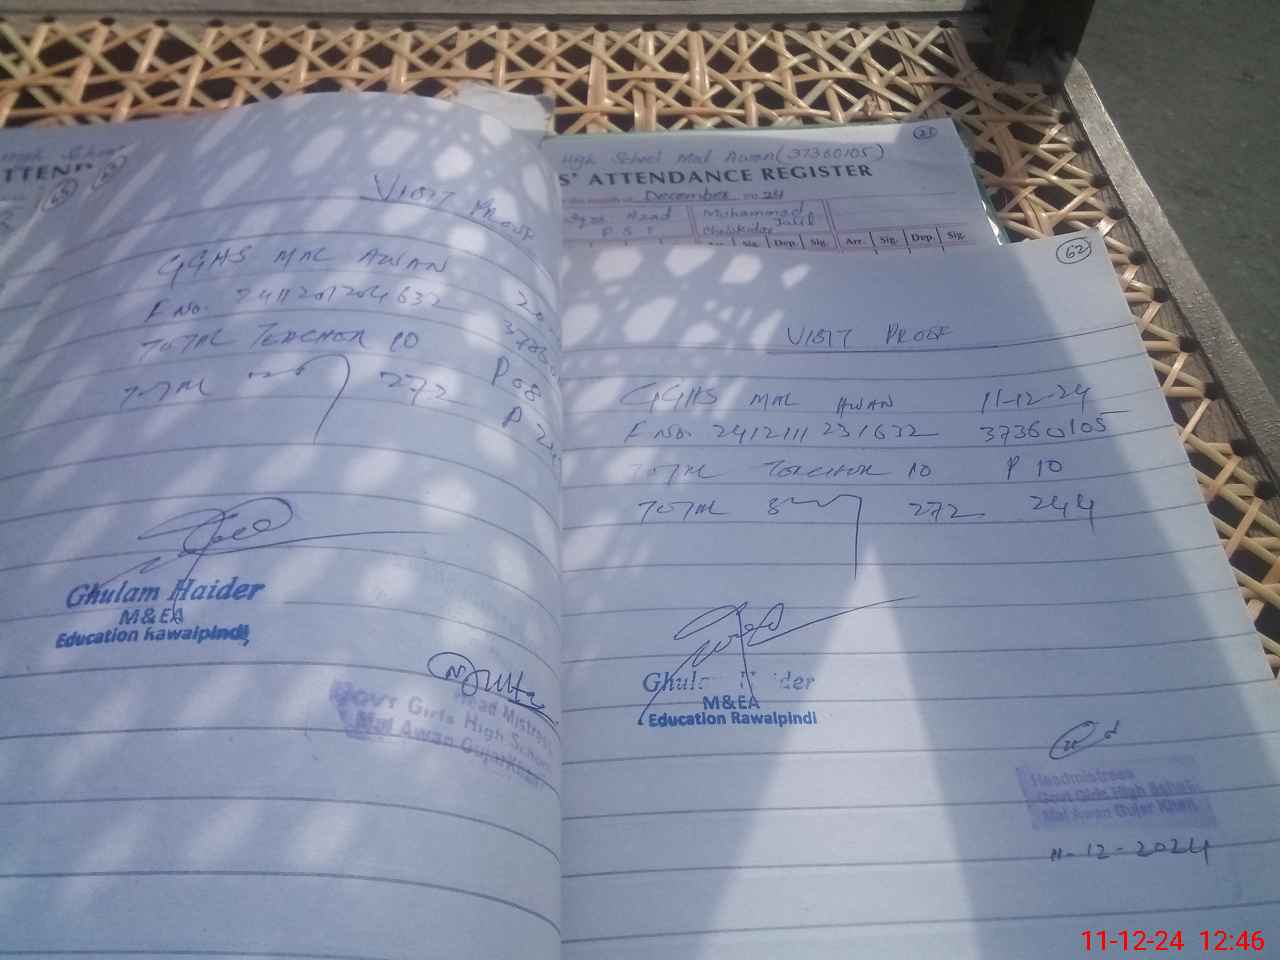 TTEND
VISIT PROOF
GGHS MAL AWAN 20
F No. 2411201204632
TOTAL TEACHOR 10 P 08
TOTAL 272 P
Ghulam Haider
M&EA
Education Rawalpindi
Head Mistress
GOVT Girls High School
Mal Awan GujarKhan
21
High School Mal Awan (37360105)
S' ATTENDANCE REGISTER
December 2024
Azad Muhammad
P.S.T Chokidar Jalil
Sig. Dep. Sig. Arr. Sig. Dep. Sig.
62
VISIT PROOF
GGHS MAL AWAN 11-12-24
F No. 2412111231632 37360105
TOTAL TEACHOR 10 P 10
TOTAL 272 244
Ghul der
M&EA
Education Rawalpindi
Headmistress
Govt Girls High School
Mal Awan Gujar Khan
11-12-2024
11-12-24 12:46